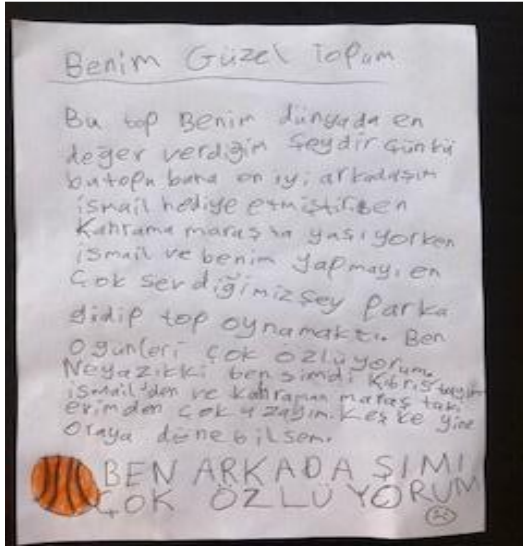 Benim Güzel Topum
Bu top Benim dünyada en
değer verdiğim şeydir çünkü
bu topu bana en iyi arkadaşım
ismail hediye etmiştir Ben
Kahrama maraş ta yaşıyorken
ismail ve benim yapmayı en
çok sevdiğimiz şey Parka
gidip top oynamaktı. Ben
O günleri çok özlüyorum.
Ne yazikki ben şimdi Kıbrıs'tayım
ismail'den ve kahraman maraş taki
evimden çok uzağım. Keşke yine
oraya dönebilsem.
BEN ARKADAŞIMI
ÇOK ÖZLÜYORUM